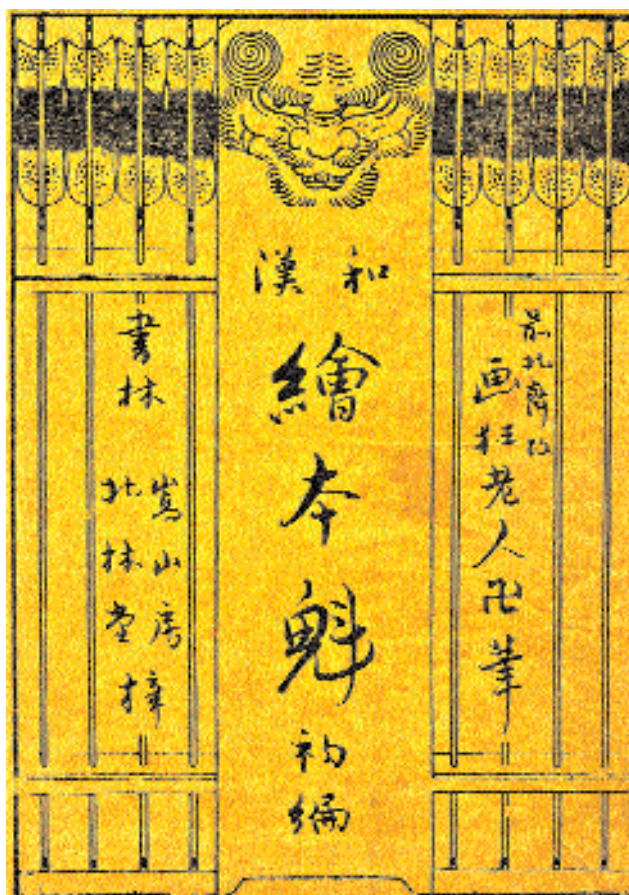 前北斎改
画狂老人卍筆
和漢
繪本魁
初編
書林
嵩山房
北林堂梓